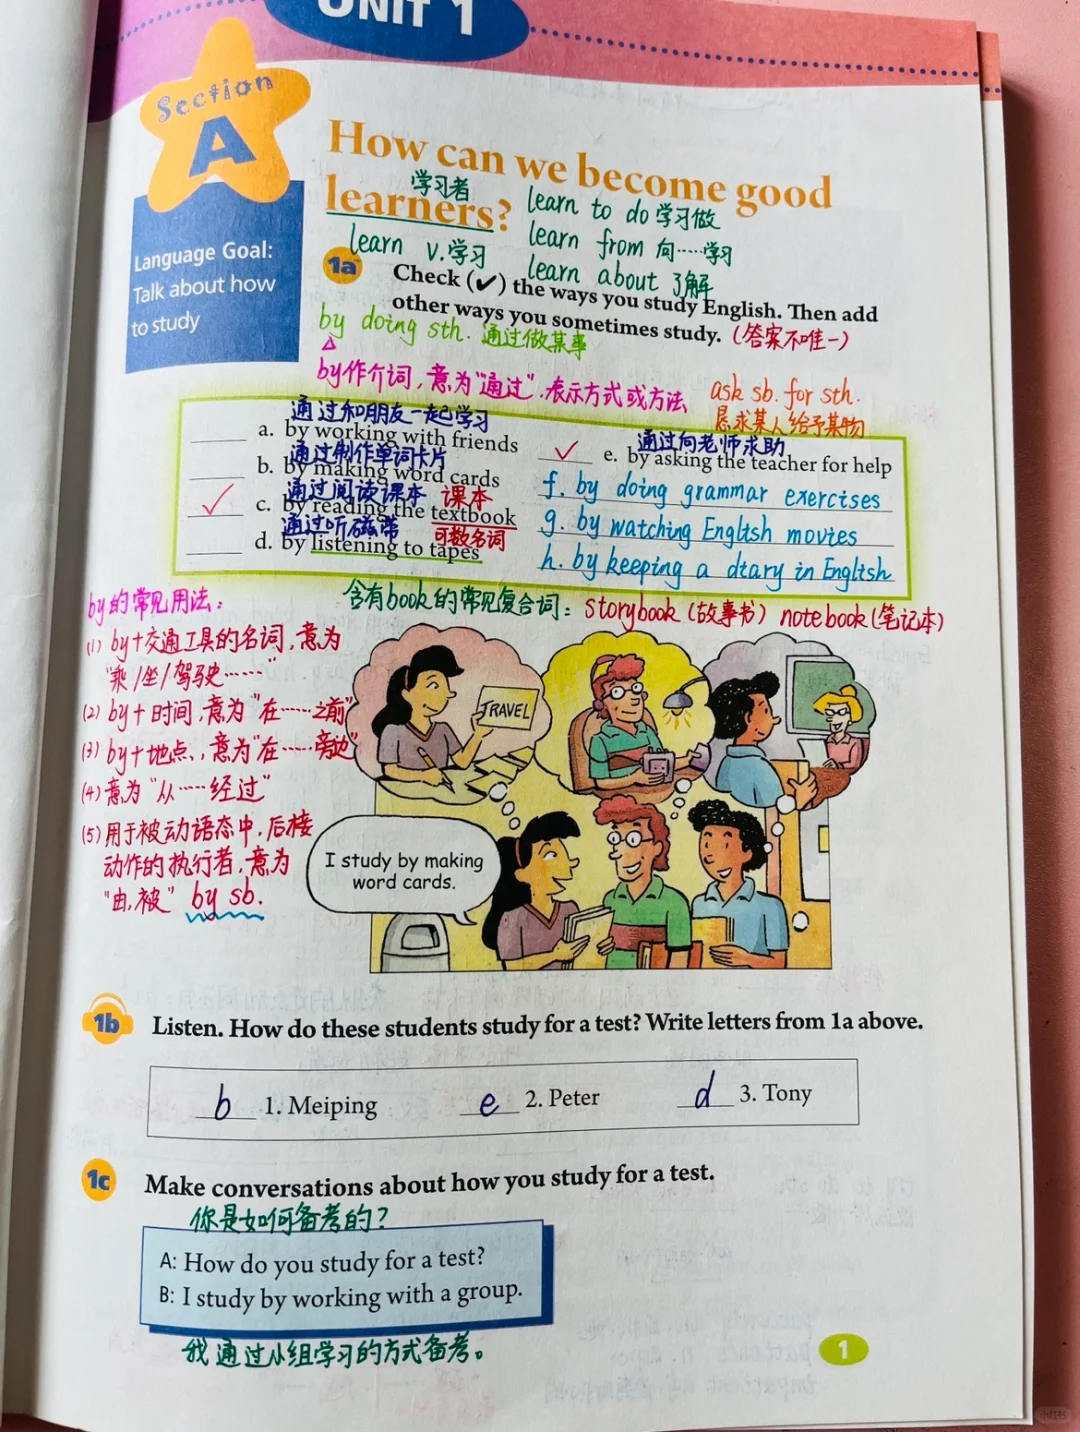 UNIT 1
Section
A
Language Goal:
Talk about how
to study
How can we become good
学习者
learners?
learn to do 学习做
learn v.学习
learn from 向……学习
learn about 了解
1a
Check (✔) the ways you study English. Then add
other ways you sometimes study. (答案不唯一)
by doing sth. 通过做某事
by作介词,意为"通过",表示方式或方法
ask sb. for sth.
恳求某人给予某物
通过和朋友一起学习
a. by working with friends
通过制作单词卡片
b. by making word cards
通过阅读课本 课本
✓ c. by reading the textbook
通过听磁带 可数名词
d. by listening to tapes
通过向老师求助
✓ e. by asking the teacher for help
f. by doing grammar exercises
g. by watching English movies
h. by keeping a diary in English
含有book的常见复合词: storybook (故事书) notebook (笔记本)
by的常见用法:
(1) by+交通工具的名词,意为
"乘/坐/驾驶……"
(2) by+时间,意为"在……之前"
(3) by+地点,意为"在……旁边"
(4) 意为"从……经过"
(5) 用于被动语态中,后接
动作的执行者,意为
"由,被" by sb.
TRAVEL
I study by making
word cards.
1b
Listen. How do these students study for a test? Write letters from 1a above.
b 1. Meiping e 2. Peter d 3. Tony
1c
Make conversations about how you study for a test.
你是如何备考的?
A: How do you study for a test?
B: I study by working with a group.
我通过小组学习的方式备考。
1
小红书